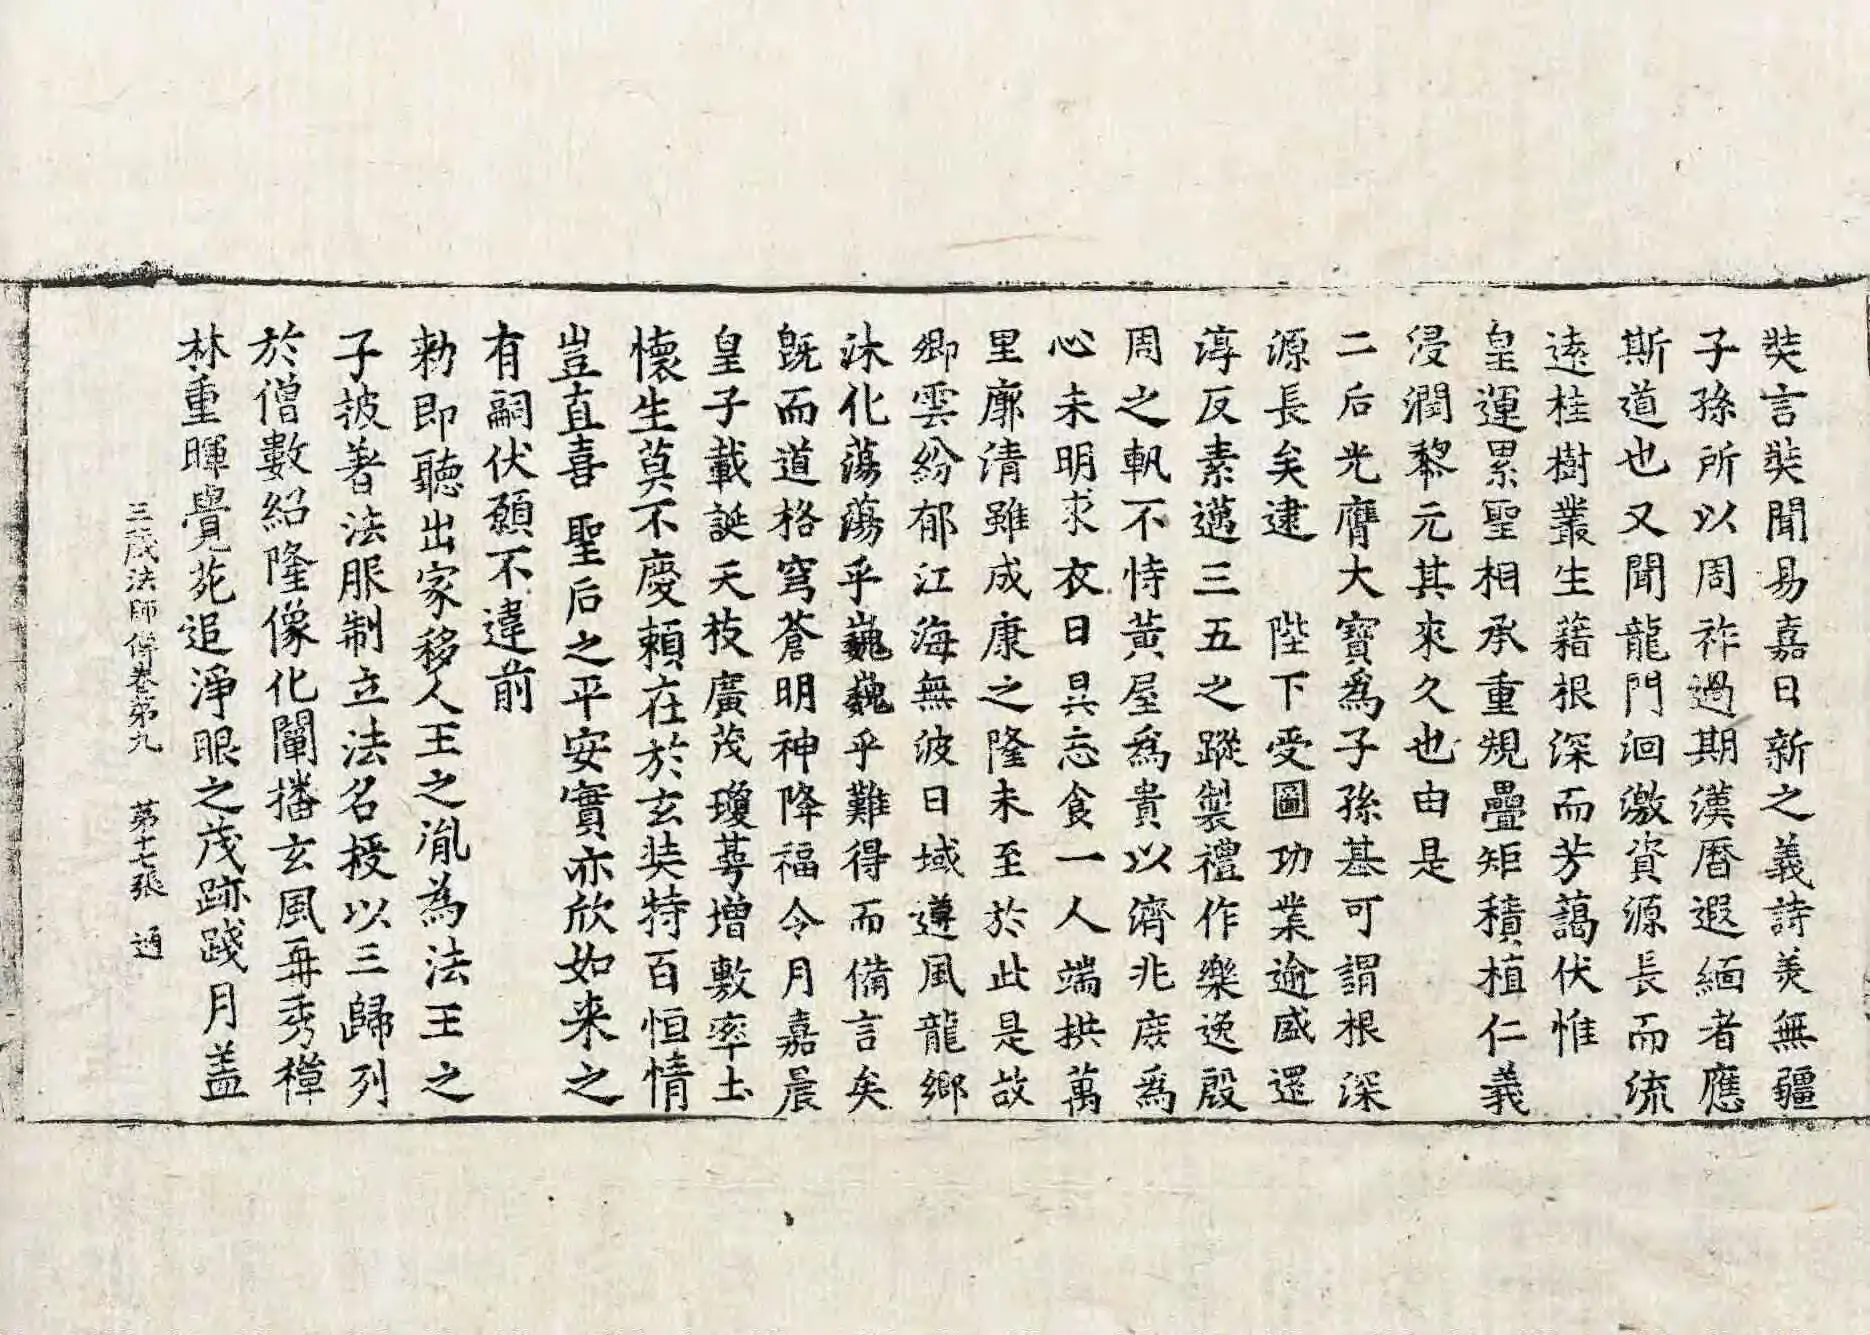 奘言奘聞易嘉日新之義詩美無疆
子孫所以周祚過期漢曆遐緬者應
斯道也又聞龍門洄激資源長而流
遠桂樹叢生藉根深而芳藹伏惟
皇運累聖相承重規疊矩積植仁義
浸潤黎元其來久也由是
二后光膺大寶為子孫基可謂根深
源長矣逮 陛下受圖功業逾盛還
淳反素邁三五之蹤製禮作樂逸殷
周之軌不恃黃屋為貴以濟兆庶為
心未明求衣日昃忘食一人端拱萬
里廓清雖成康之隆未至於此是故
卿雲紛郁江海無波日域遵風龍鄉
沐化蕩蕩乎巍巍乎難得而備言矣
既而道格穹蒼明神降福令月嘉晨
皇子載誕天枝廣茂瓊萼增敷率土
懷生莫不慶賴在於玄奘特百恒情
豈直喜 聖后之平安實亦欣如来之
有嗣伏願不違前
勑即聽出家移人王之胤為法王之
子披著法服制立法名授以三歸列
於僧數紹隆像化闡播玄風再秀檀
林重暉覺苑追淨眼之茂跡踐月盖
三藏法師傳卷第九 第十七張 通